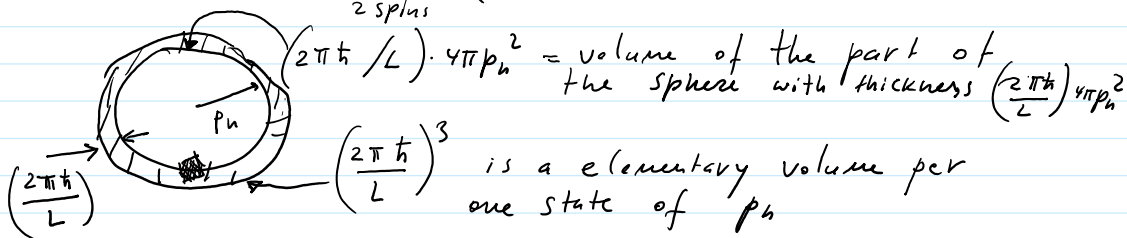 2 spins
(2πħ/L)·4πpₙ² = volume of the part of
the sphere with thickness (2πħ/L) 4πpₙ²
pₙ
(2πħ/L)³ is a elementary volume per
one state of pₙ
(2πħ/L)